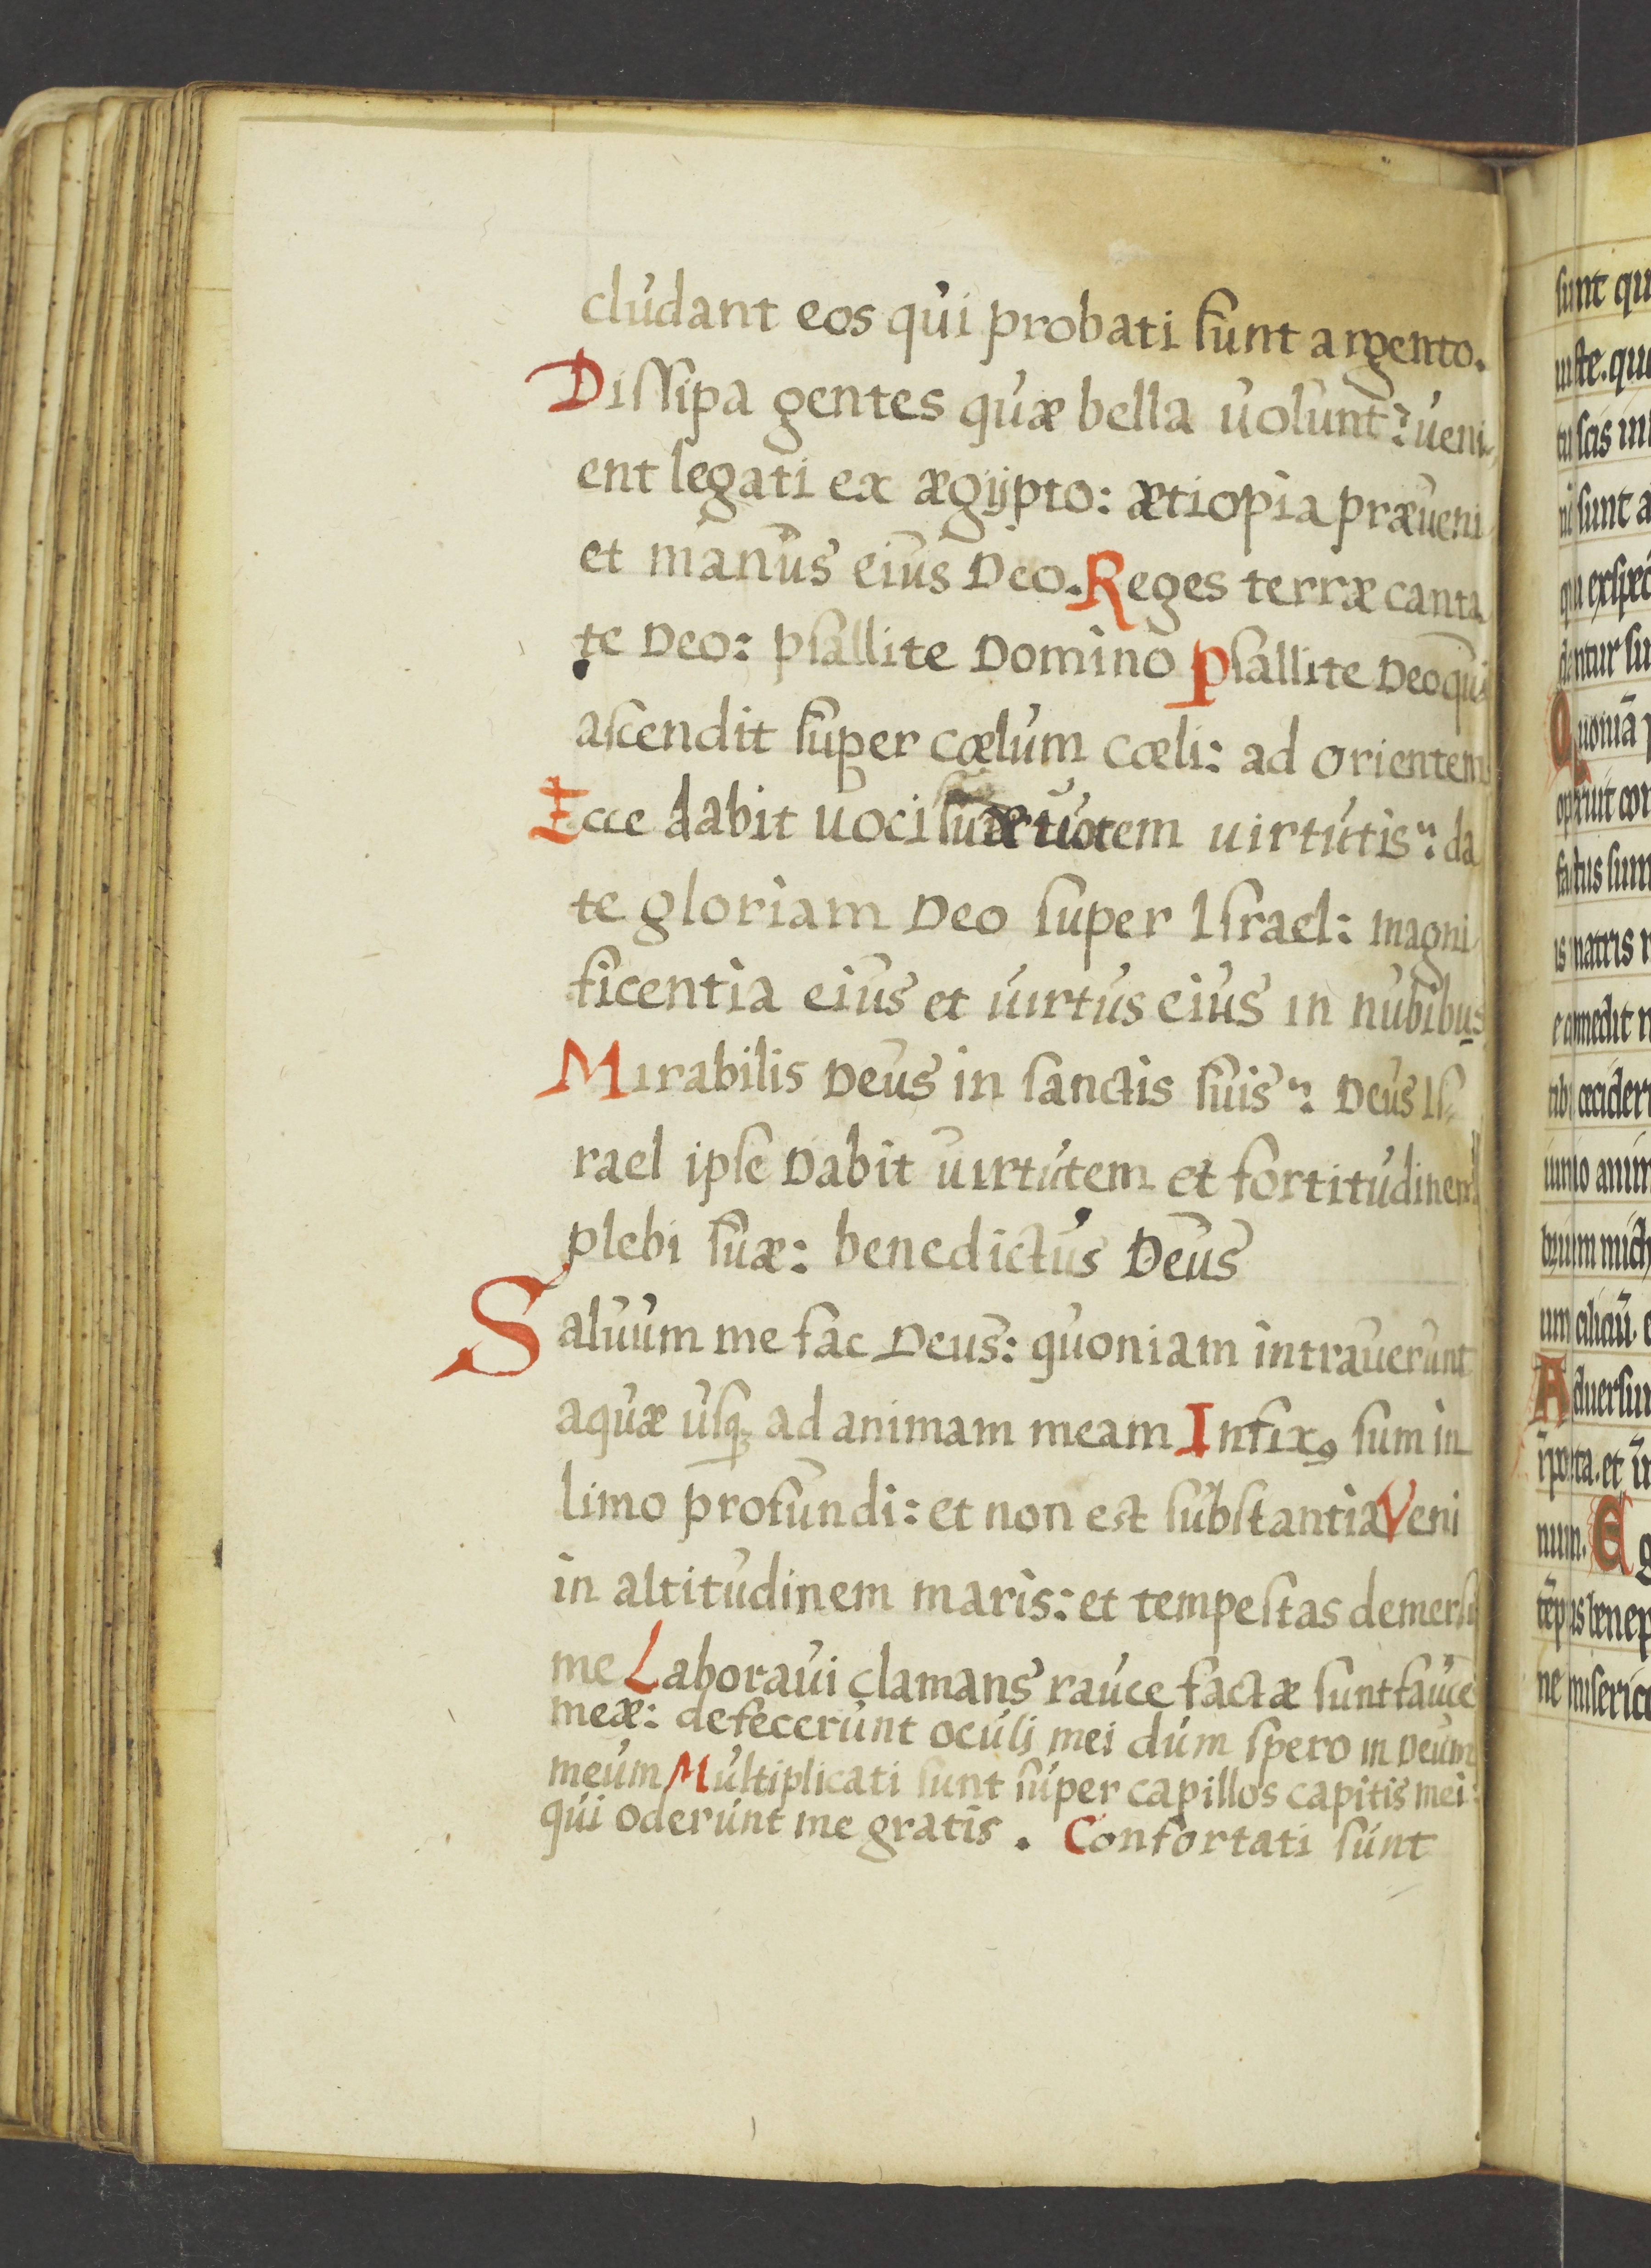 cludant eos qui probati sunt argento.
Dissipa gentes quæ bella uolunt: ueni
ent legati ex ægÿpto: ætiopia præueni
et manus eius Deo. Reges terræ canta
te Deo: psallite Domino Psallite Deo qui
ascendit super cœlum cœli: ad orientem
Ecce dabit uoci suæ uocem uirtutis: da
te gloriam Deo super Israel: magni
ficentia eius et uirtus eius in nubibus
Mirabilis Deus in sanctis suis: Deus Is
rael ipse Dabit uirtutem et fortitudinem
plebi suæ: benedictus Deus
Saluum me fac Deus: quoniam intrauerunt
aquæ usq; ad animam meam Infixꝯ sum in
limo profundi: et non est substantia Veni
in altitudinem maris: et tempestas demersi
me Laboraui clamans rauce factæ sunt fauce
meæ: defecerunt oculi mei dum spero in Deum
meum Multiplicati sunt super capillos capitis mei:
qui oderunt me gratis. Confortati sunt
sunt
tu scis
sunt a
Quoniā
factus sum
matris